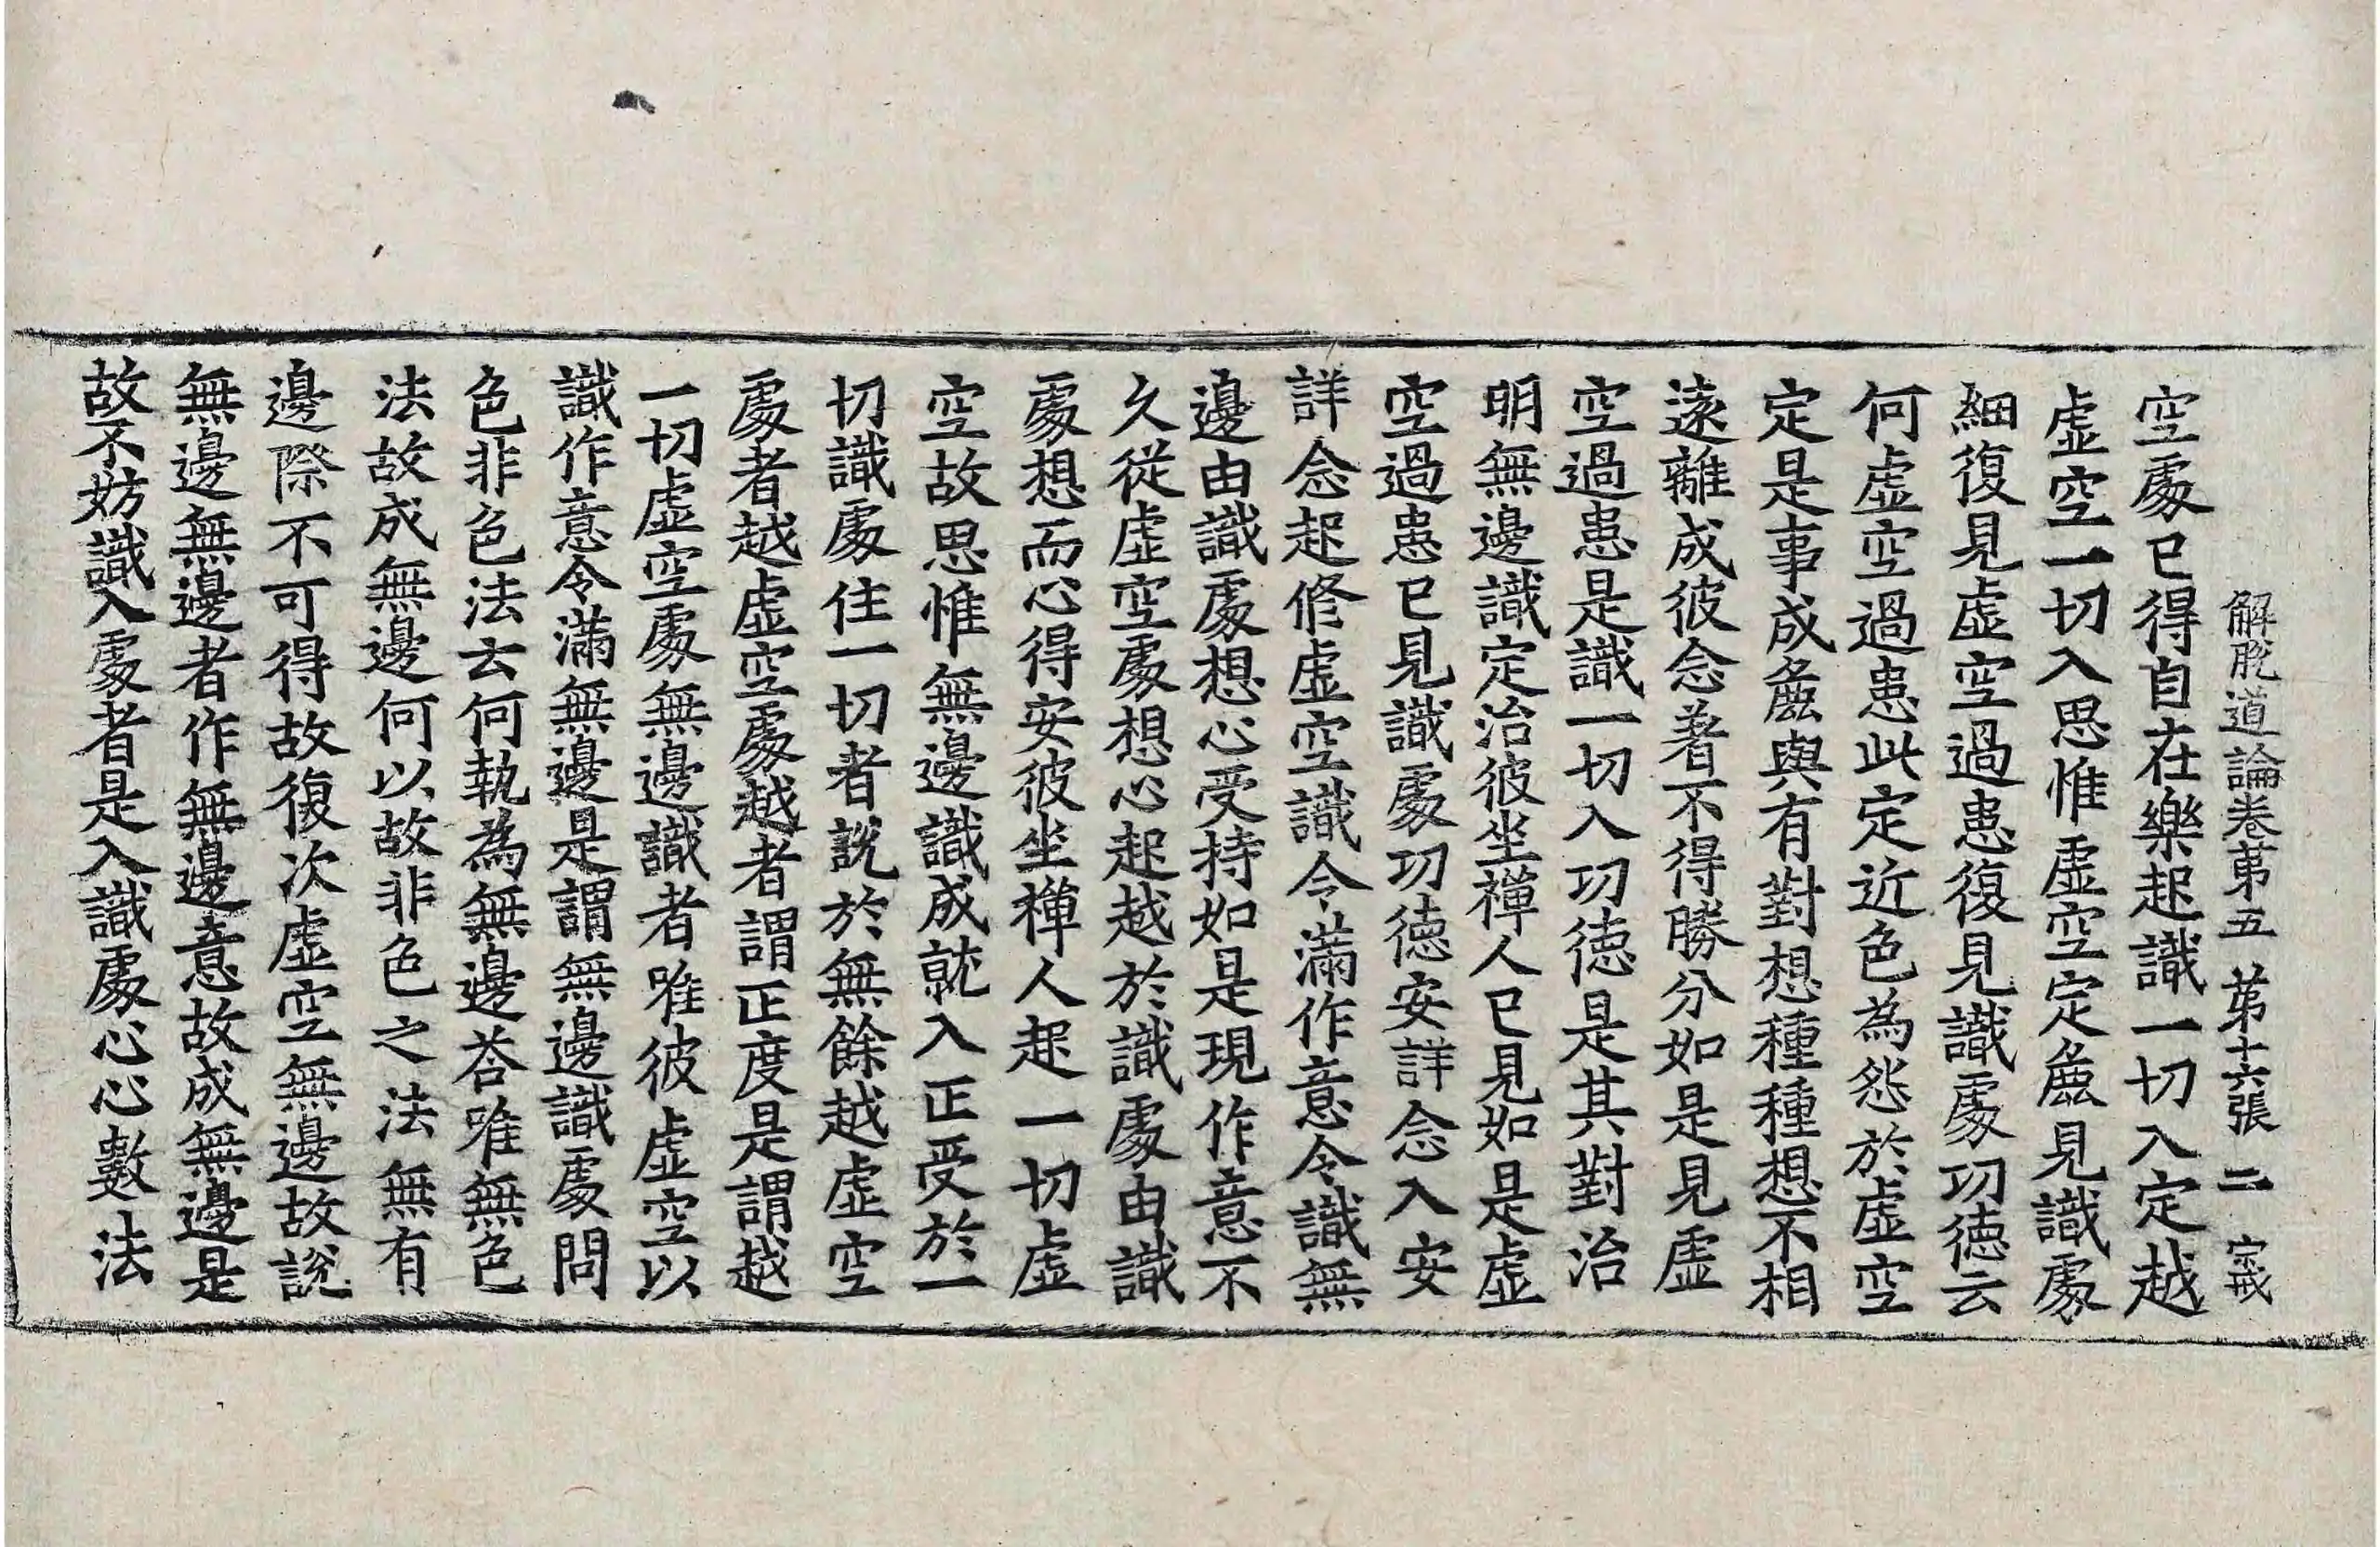 解脫道論卷第五 第十六張 二 㝎
空處已得自在樂起識一切入定越
虛空一切入思惟虛空定麁見識處
細復見虛空過患復見識處功德云
何虛空過患此定近色為怨於虛空
定是事成麁與有對想種種想不相
遠離成彼念著不得勝分如是見虛
空過患是識一切入功德是其對治
明無邊識定治彼坐禪人已見如是虛
空過患已見識處功德安詳念入安
詳念起修虛空識令滿作意令識無
邊由識處想心受持如是現作意不
久從虛空處想心起越於識處由識
處想而心得安彼坐禪人起一切虛
空故思惟無邊識成就入正受於一
切識處住一切者說於無餘越虛空
處者越虛空處越者謂正度是謂越
一切虛空處無邊識者唯彼虛空以
識作意令滿無邊是謂無邊識處問
色非色法云何執為無邊荅唯無色
法故成無邊何以故非色之法無有
邊際不可得故復次虛空無邊故說
無邊無邊者作無邊意故成無邊是
故不妨識入處者是入識處心心數法